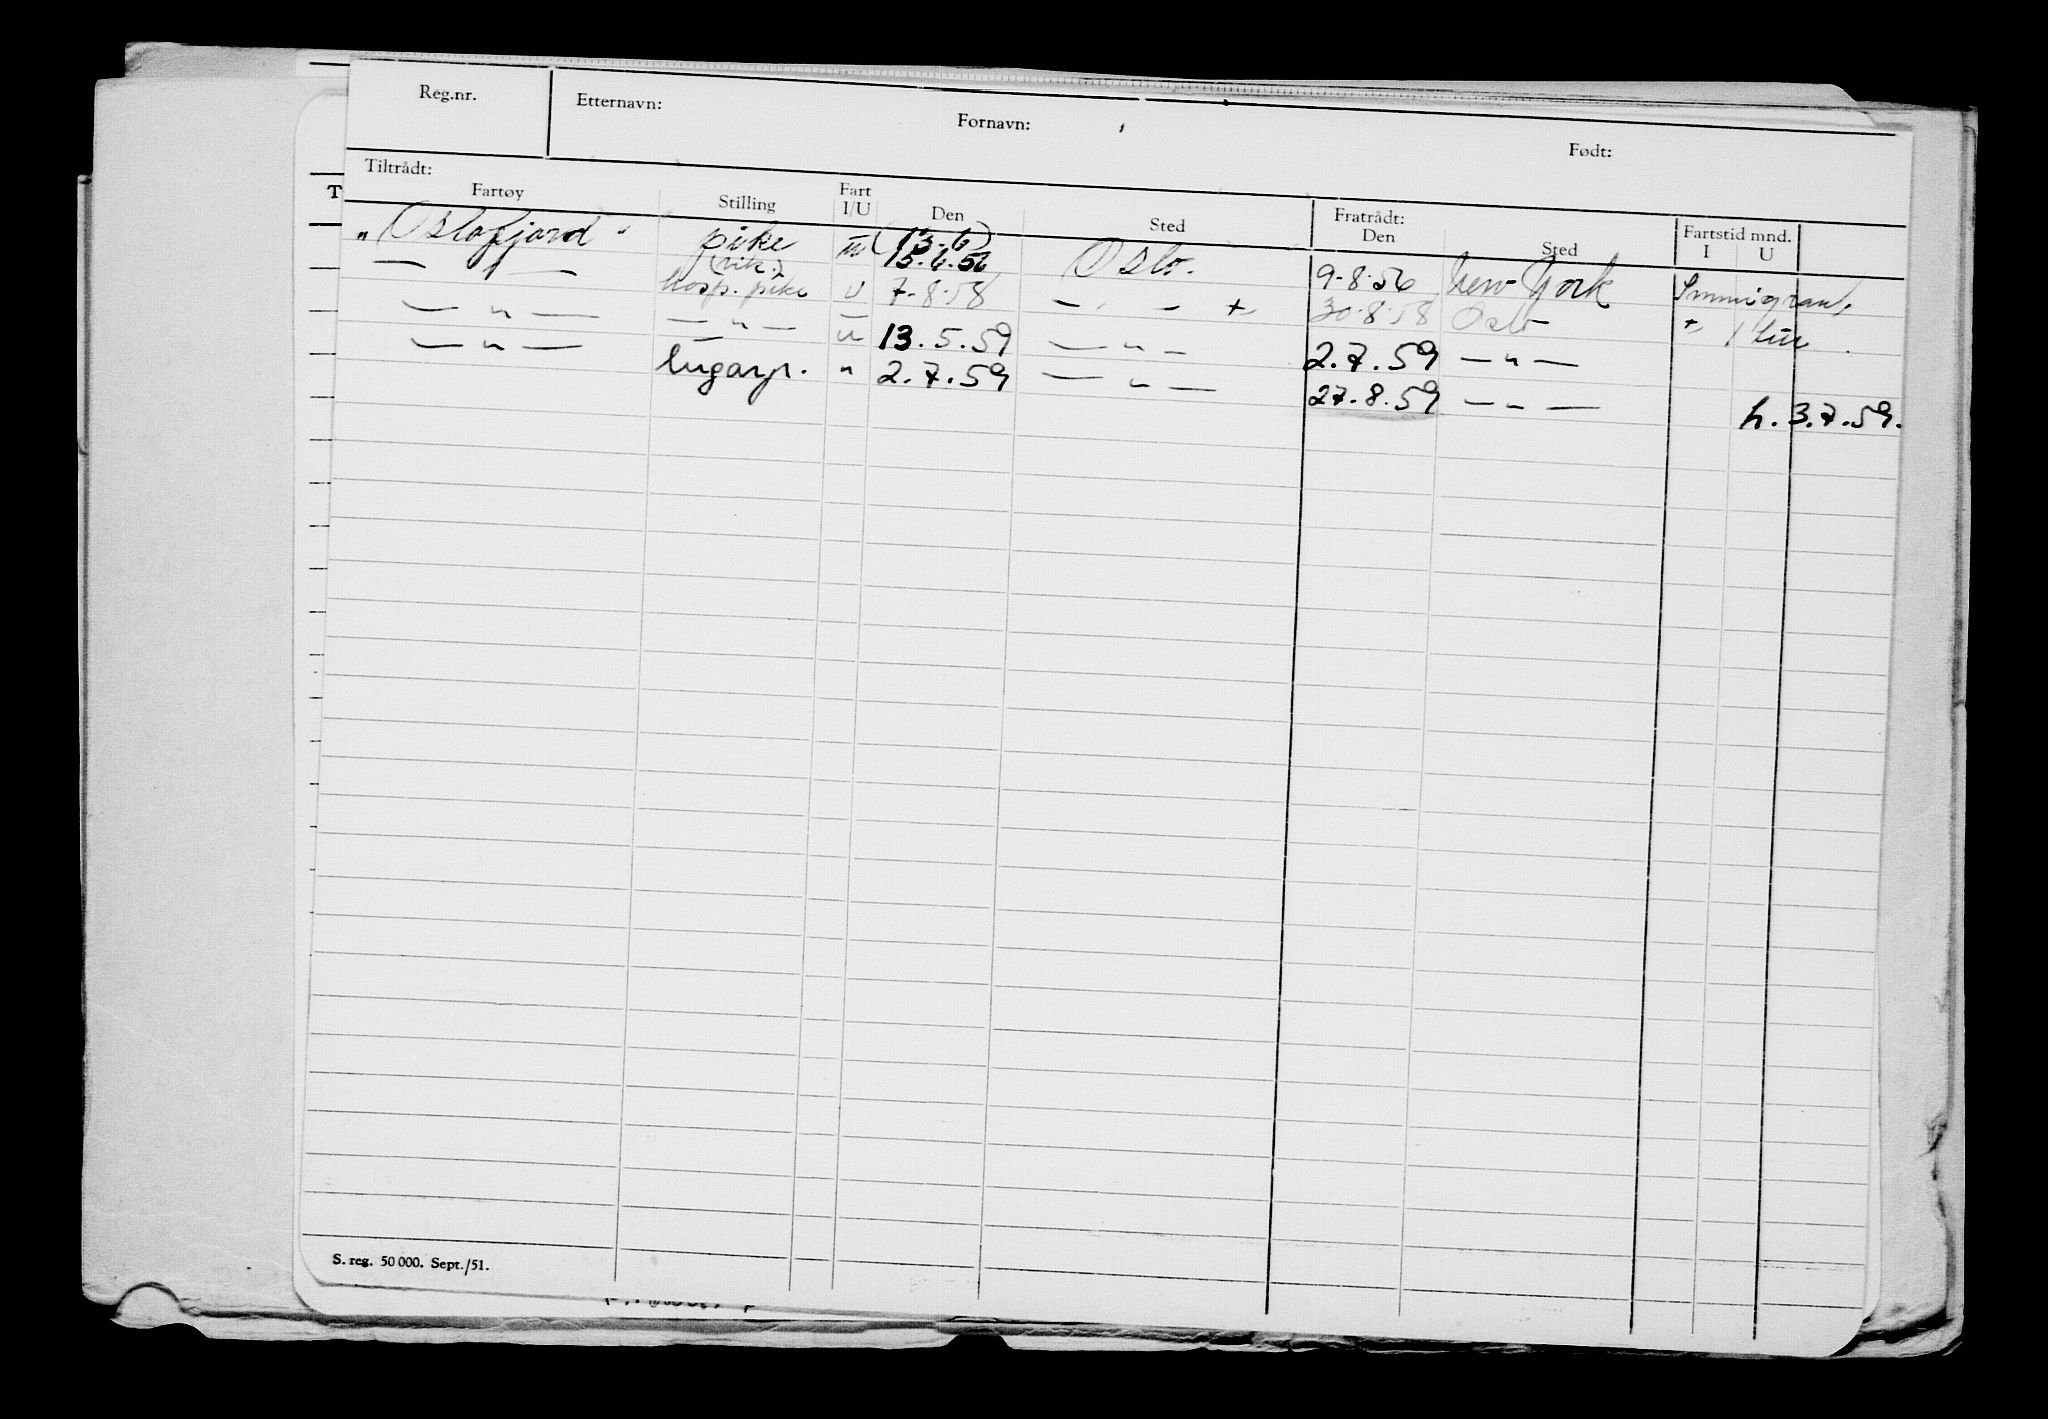 Reg.nr. Etternavn: Fornavn: Født:
Tiltrådt: Fratrådt: Fartstid mnd.
T Fartøy Stilling Fart I/U Den Sted Den Sted I U
"Oslofjord" pike (vik.) U (13-6) 15.6.56 Oslo. 9-8-56 New York Immigrant
— " — hosp. pike U 7-8-58 — " — + 30-8-58 Oslo + 1 tur
— " — — " — U 13.5.59 — " — 2.7.59 — " —
— " — lugarp. " 2.7.59 — " — 27.8.59 — " —
h. 3.7.59.
S. reg. 50 000. Sept./51.